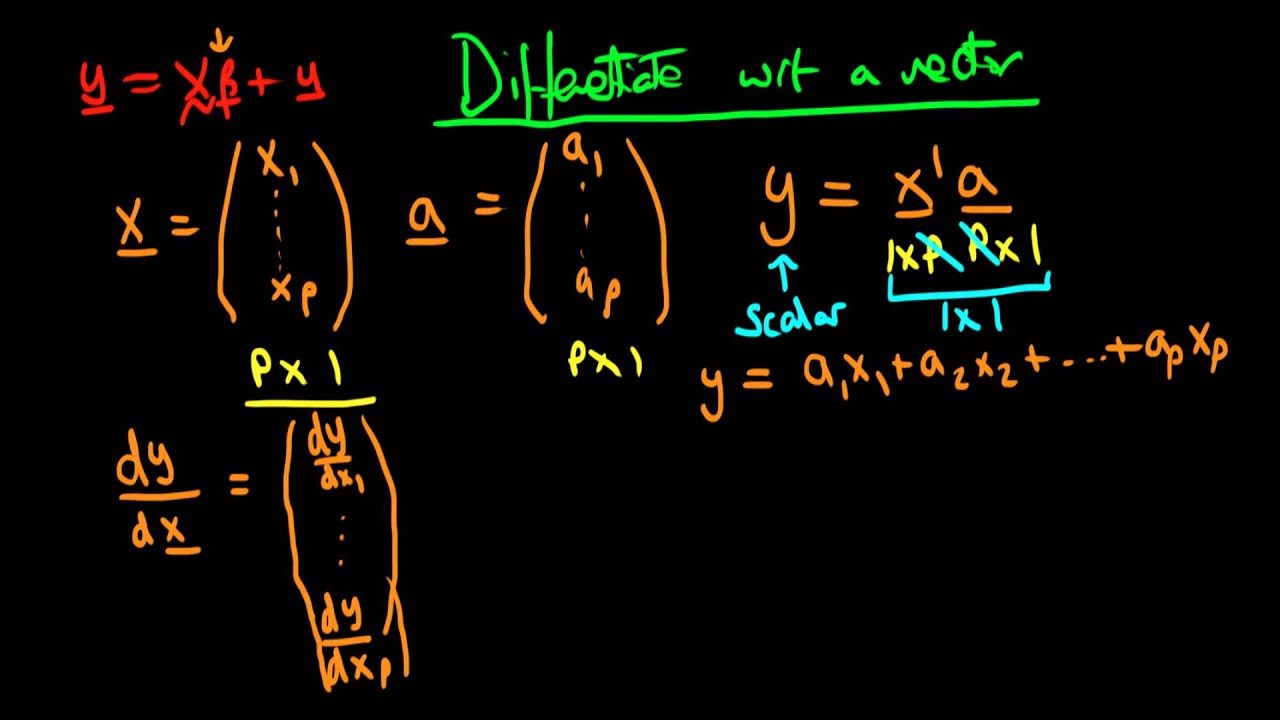 y = Xβ + y
Differentiate wrt a vector
x = ( x₁ ⋮ xₚ )
a = ( a₁ ⋮ aₚ )
y = x' a
1xp px1
scalar
1x1
px1
px1
y = a₁x₁ + a₂x₂ + ... + aₚxₚ
dy/dx = ( dy/dx₁ ⋮ dy/dxₚ )